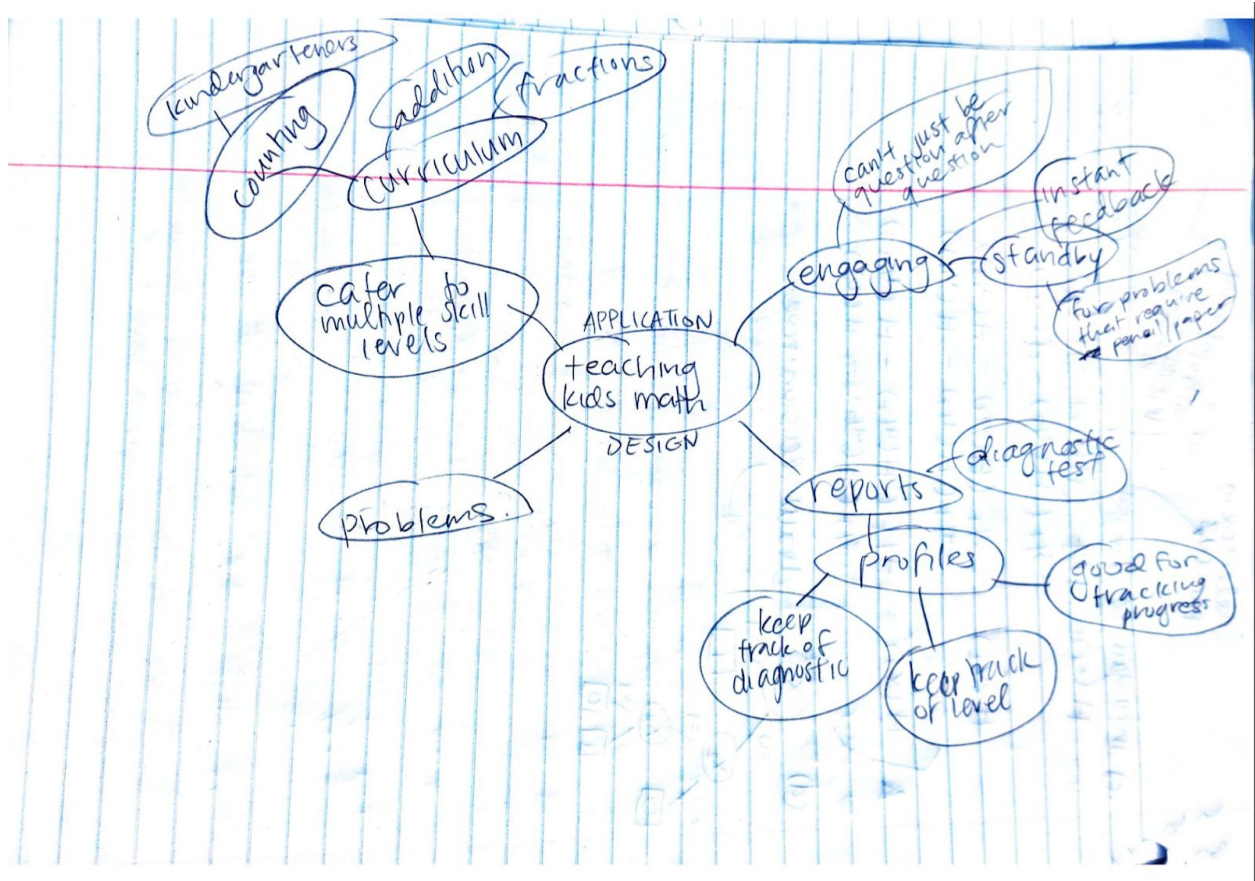 kindergarteners
counting
addition
fractions
curriculum
cater to
multiple skill
levels
APPLICATION
teaching
kids math
DESIGN
problems.
engaging
can't just be
question after
question
instant
feedback
standby
for problems
that require
pencil/paper
reports
diagnostic
test
profiles
keep
track of
diagnostic
keep track
of level
good for
tracking
progress